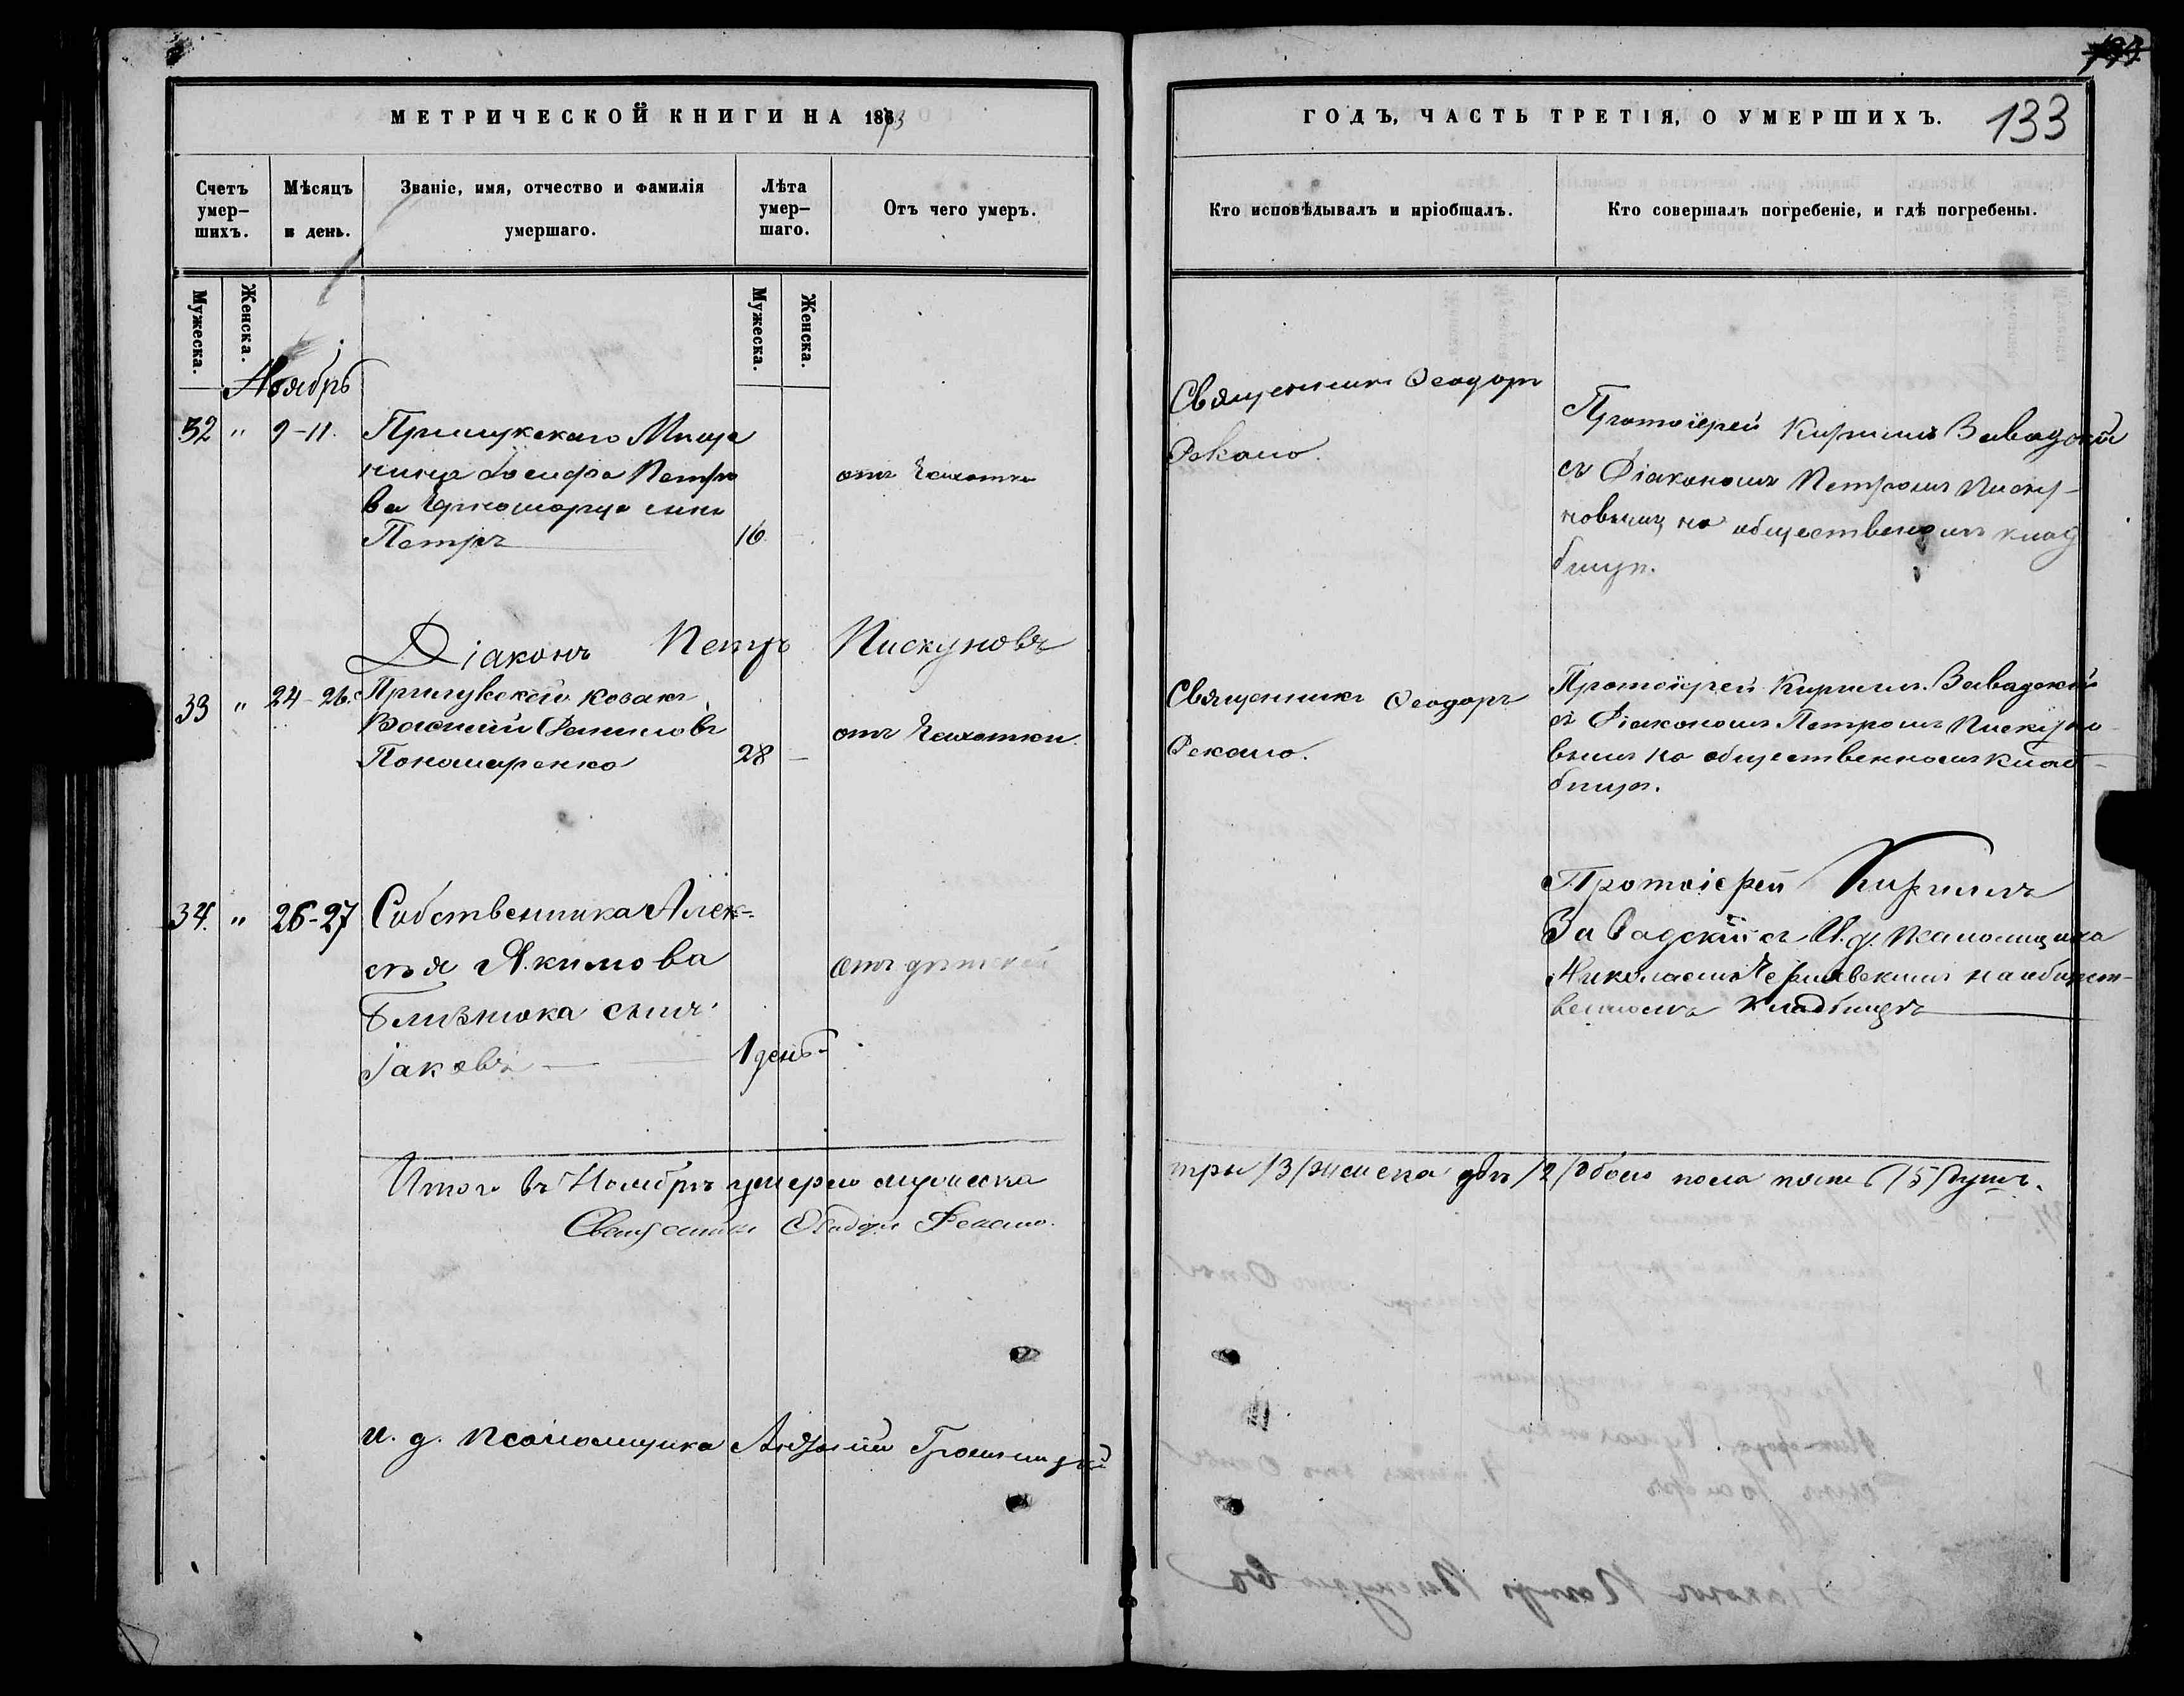 МЕТРИЧЕСКОЙ КНИГИ НА 1873
ГОДЪ, ЧАСТЬ ТРЕТІЯ, О УМЕРШИХЪ.
133
Счетъ умер-
шихъ.
Мѣсяцъ
и день.
Званіе, имя, отчество и фамилія
умершаго.
Лѣта
умер-
шаго.
Отъ чего умеръ.
Кто исповѣдывалъ и пріобщалъ.
Кто совершалъ погребеніе, и гдѣ погребены.
Мужеска.
Женска.
Мужеска.
Женска.
Ноябрь
32 " 9-11.
Прилукскаго Мѣща
нина Іосифа Петро
ва Черноморца сынъ
Петръ
16
отъ Чахотки
Священникъ Ѳеодоръ
Протоіерей Кириллъ Завадскій
съ Діакономъ Петромъ Писку-
новымъ, на общественомъ клад
бищѣ.
Діаконъ Петръ Пискуновъ
33 " 24-26.
Прилукскій козакъ
Василій Даниловъ
Пономаренко
28 -
отъ Чахотки
Священникъ Ѳеодоръ
Протоіерей Кириллъ Завадскій
съ Діакономъ Петромъ Пискуно-
вымъ на общественномъ клад-
бищѣ.
34. " 26-27
Собственника Алек-
сѣя Якимова
Близнюка сынъ
Іаковъ
1 день
отъ дѣтской
Протоіерей Кириллъ
Завадскій съ И. д. Псаломщика
Николаемъ Чернявскимъ на общест-
венномъ кладбищѣ
Итого въ Ноябрѣ умерло мужеска
три /3/ женска двѣ /2/ обоего пола пять /5/ душъ.
Священникъ Ѳеодоръ
И. д. Псаломщика Андрей